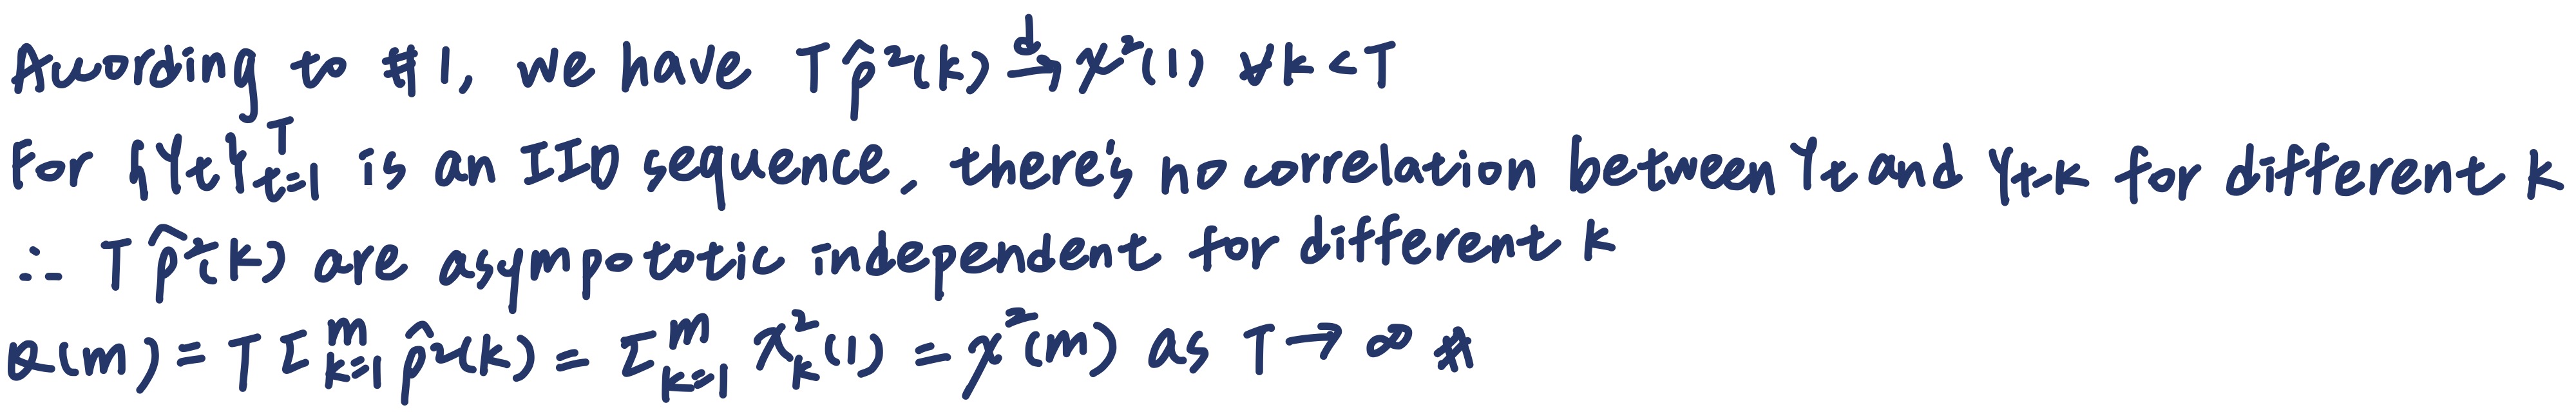 According to #1, we have T ρ̂²(k) →ᵈ χ²(1) ∀k < T
For {Yt}ᵀt=1 is an IID sequence, there's no correlation between Yt and Yt-k for different k
∴ T ρ̂²(k) are asympototic independent for different k
Q(m) = T Σᵐk=1 ρ̂²(k) = Σᵐk=1 χ²k(1) = χ²(m) as T → ∞ #